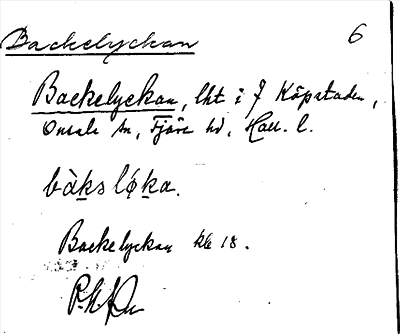 Backelyckan 6
Backelyckan, lht i 7 Köpstaden,
Onsala sn, Fjäre hd, Hall. l.
bàkslø̀ka.
Backelyckan kle 18.